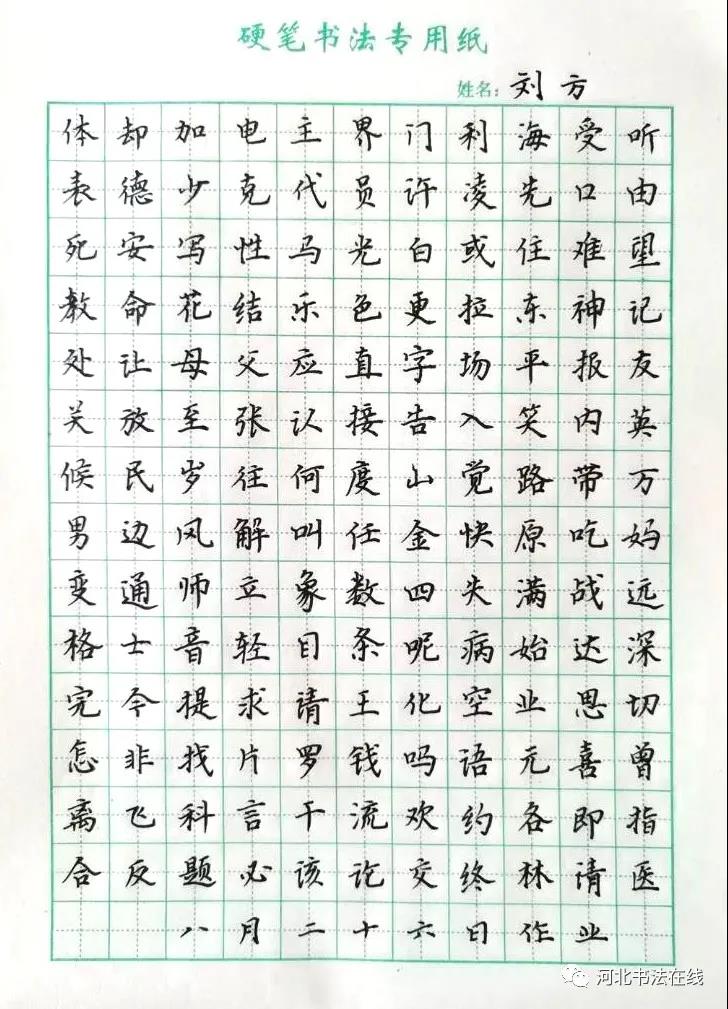 硬笔书法专用纸
姓名：刘方
体却加电主界门利海受听
表德少克代员许凌先口由
死安写性马光白或住难望
教命花结乐色更拉东神记
处让母父应直字场平报友
关放至张认接告入笑内英
候民岁往何度山觉路带万
男边风解叫任金快原吃妈
变通师立象数四失满战远
格士音轻目条呢病始达深
完今提求请王化空业思切
怎非找片罗钱吗语元喜曾
离飞科言干流欢约各即指
合反题必该论交终林请医
八月二十六日作业
河北书法在线